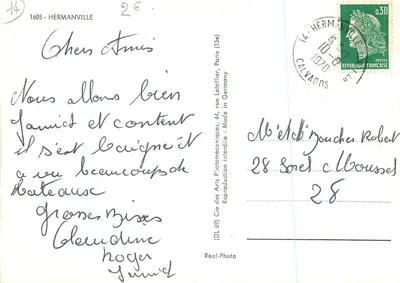 14
2€
1605 - HERMANVILLE
Chers Amis
Nous allons bien
et content
il s'est baigné et
a vu beaucoup de
bateaux
Grosses Bises
Claudine
Roger
(DL 69) Cie des Arts Photomécaniques, 44, rue Letellier, Paris (15e)
Reproduction interdite - Made in Germany
Réal-Photo
14 - HERMANVILLE
10-8
1970
CALVADOS
0,30
REPUBLIQUE FRANÇAISE
POSTES
M et Boucher Robert
28 Sorel Moussel
28